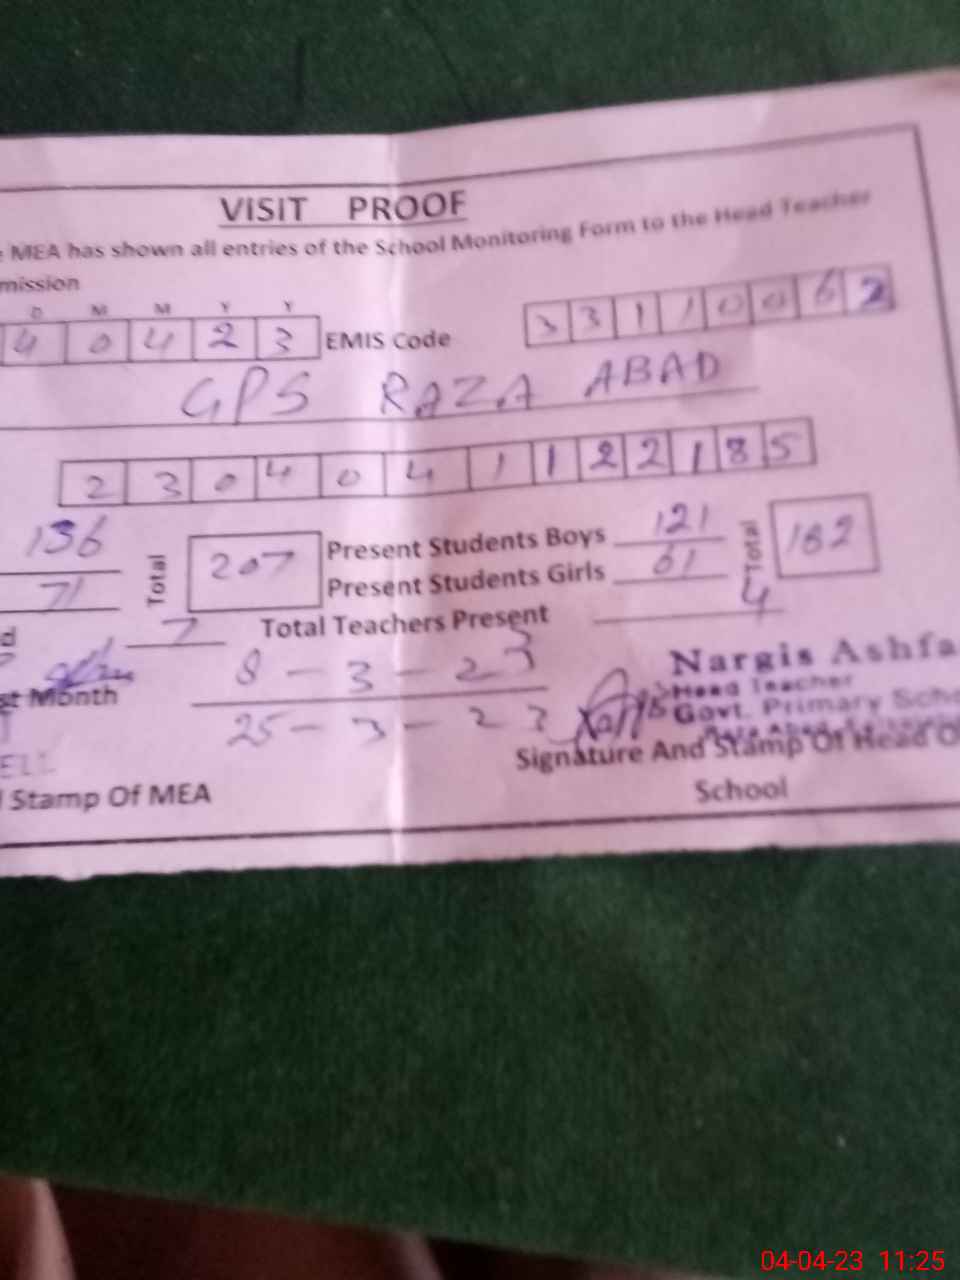 VISIT PROOF
MEA has shown all entries of the School Monitoring Form to the Head Teacher
mission
D M M Y Y
4 0 4 2 3 EMIS Code 3 3 1 1 0 0 6 2
GPS RAZA ABAD
2 3 0 4 0 4 1 1 2 2 1 8 5
136 Total 207 Present Students Boys 121 Total 182
71 Present Students Girls 61
d 7 Total Teachers Present 4
st Month 8-3-23
25-3-23
Nargis Ashfa
Head Teacher
Govt. Primary Scho
Signature And Stamp Of Head O
School
ELL
Stamp Of MEA
04-04-23 11:25